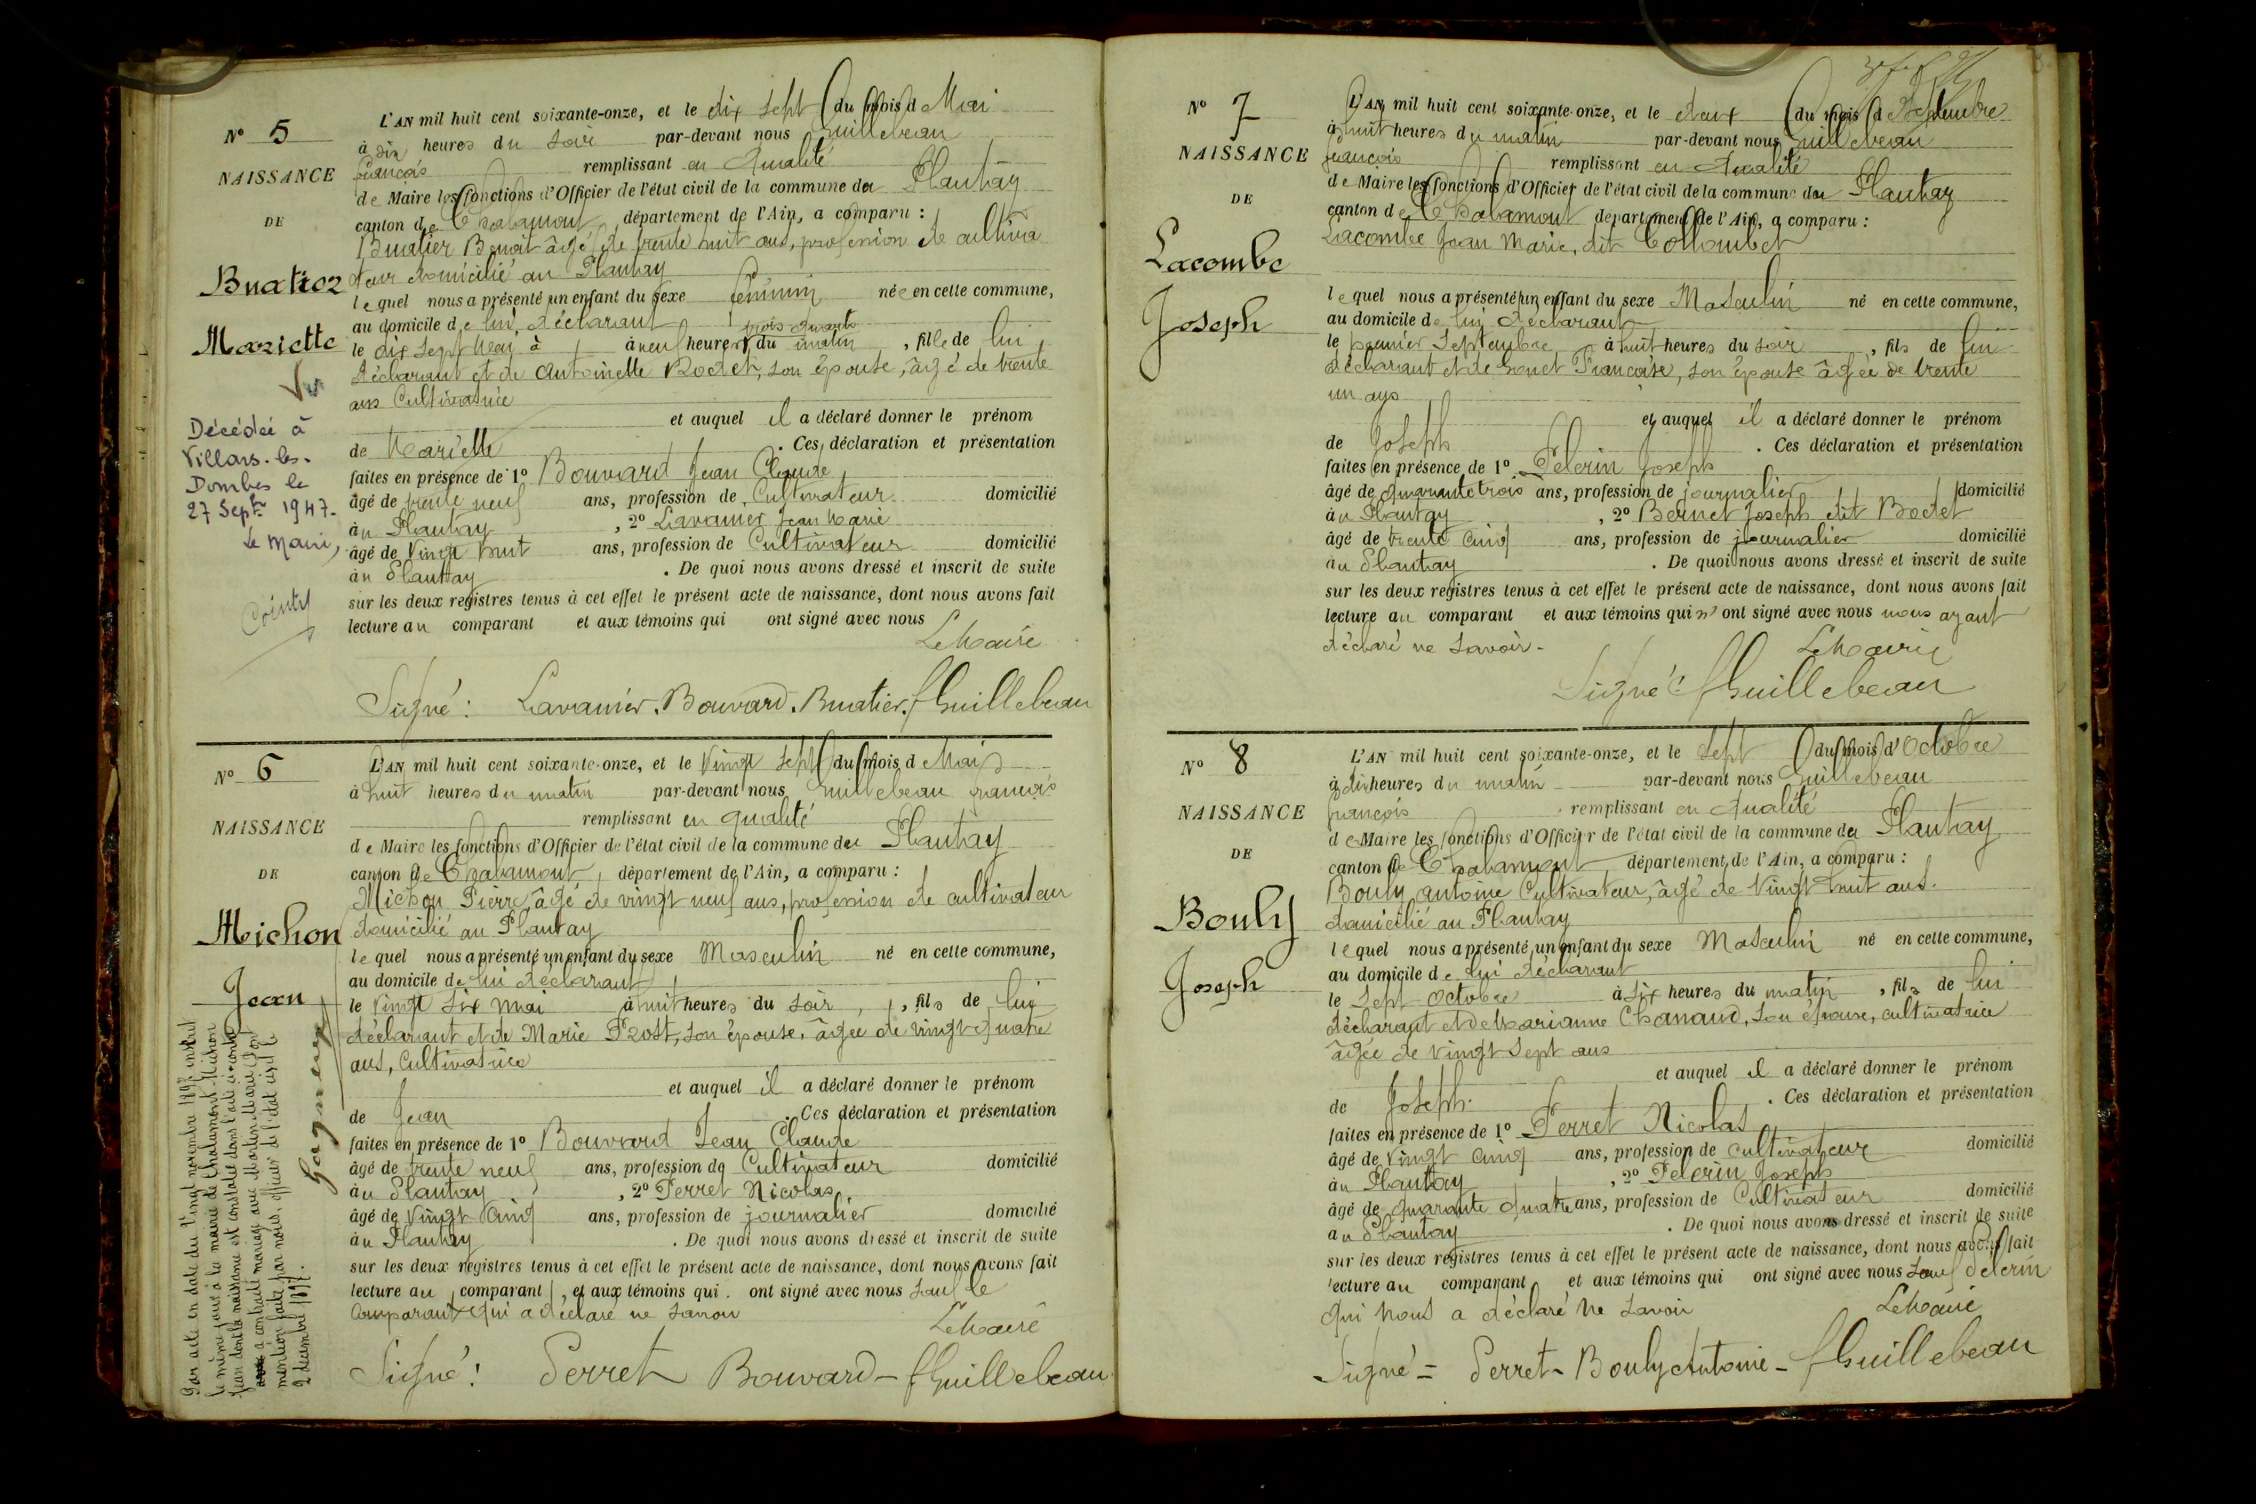 N° 5
NAISSANCE
DE
Buatier
Mariette
Décédée à
Villars-les-
Dombes le
27 Septre 1947.
Le Maire,
L'AN mil huit cent soixante-onze, et le dix sept du mois d Mai
à dix heures du soir par-devant nous Guillebeau
françois remplissant en qualité
de Maire les fonctions d'Officier de l'état civil de la commune du Plantay
canton de Chalamont, département de l'Ain, a comparu :
Buatier Benoit âgé de trente huit ans, profession de cultiva
teur domicilié au Plantay
lequel nous a présenté un enfant du sexe féminin née en cette commune,
au domicile de lui déclarant trois quarts
le dix sept Mai à à neuf heures du matin, fille de lui
déclarant et de Antoinette Bodet, son épouse, âgée de trente
ans Cultivatrice
et auquel il a déclaré donner le prénom
de Mariette. Ces déclaration et présentation
faites en présence de 1° Bouvard Jean Claude
âgé de trente neuf ans, profession de Cultivateur domicilié
au Plantay, 2° Lavanier Jean Marie
âgé de vingt huit ans, profession de Cultivateur domicilié
au Plantay. De quoi nous avons dressé et inscrit de suite
sur les deux registres tenus à cet effet le présent acte de naissance, dont nous avons fait
lecture au comparant et aux témoins qui ont signé avec nous
Le Maire
Signé : Lavanier. Bouvard. Buatier. f Guillebeau
N° 6
NAISSANCE
DE
Michon
Jean
Par acte en date du vingt novembre 1897 inscrit
le même jour à la mairie de Chalamont Michon
Jean dont la naissance est constatée dans l'acte ci-contre
a contracté mariage avec Martin Marie
mention faite par nous, officier de l'état civil le
2 décembre 1897.
L'AN mil huit cent soixante-onze, et le vingt sept du mois d Mai
à huit heures du matin par-devant nous Guillebeau françois
remplissant en qualité
de Maire les fonctions d'Officier de l'état civil de la commune du Plantay
canton de Chalamont, département de l'Ain, a comparu :
Michon Pierre, âgé de vingt neuf ans, profession de cultivateur
domicilié au Plantay
lequel nous a présenté un enfant du sexe Masculin né en cette commune,
au domicile de lui déclarant
le vingt six mai à huit heures du soir, fils de lui
déclarant et de Marie Prost, son épouse, âgée de vingt quatre
ans, cultivatrice
et auquel il a déclaré donner le prénom
de Jean. Ces déclaration et présentation
faites en présence de 1° Bouvard Jean Claude
âgé de trente neuf ans, profession de Cultivateur domicilié
au Plantay, 2° Perret Nicolas
âgé de vingt cinq ans, profession de journalier domicilié
au Plantay. De quoi nous avons dressé et inscrit de suite
sur les deux registres tenus à cet effet le présent acte de naissance, dont nous avons fait
lecture au comparant, et aux témoins qui ont signé avec nous sauf le
comparant qui a déclaré ne savoir
Le Maire
Signé : Perret Bouvard - f Guillebeau
N° 7
NAISSANCE
DE
Lacombe
Joseph
L'AN mil huit cent soixante-onze, et le deux du mois d Septembre
à huit heures du matin par-devant nous Guillebeau
françois remplissant en qualité
de Maire les fonctions d'Officier de l'état civil de la commune du Plantay
canton de Chalamont département de l'Ain, a comparu :
Lacombe Jean Marie, dit Collombet
lequel nous a présenté un enfant du sexe Masculin né en cette commune,
au domicile de lui déclarant
le premier Septembre à huit heures du soir, fils de lui
déclarant et de Françoise, son épouse âgée de trente
un ans
et auquel il a déclaré donner le prénom
de Joseph. Ces déclaration et présentation
faites en présence de 1° Pelerin Joseph
âgé de quarante trois ans, profession de journalier domicilié
au Plantay, 2° Bernet Joseph dit Bodet
âgé de trente cinq ans, profession de journalier domicilié
au Plantay. De quoi nous avons dressé et inscrit de suite
sur les deux registres tenus à cet effet le présent acte de naissance, dont nous avons fait
lecture au comparant et aux témoins qui n'ont signé avec nous nous ayant
déclaré ne savoir -
Le Maire
Signé : f Guillebeau
N° 8
NAISSANCE
DE
Bouly
Joseph
L'AN mil huit cent soixante-onze, et le sept du mois d'Octobre
à dix heures du matin par-devant nous Guillebeau
françois remplissant en qualité
de Maire les fonctions d'Officier de l'état civil de la commune du Plantay
canton de Chalamont département de l'Ain, a comparu :
Bouly antoine Cultivateur, âgé de vingt huit ans.
domicilié au Plantay
lequel nous a présenté un enfant du sexe Masculin né en cette commune,
au domicile de lui déclarant
le sept Octobre à six heures du matin, fils de lui
déclarant et de Marianne Chanaud, son épouse, cultivatrice
âgée de vingt sept ans
et auquel il a déclaré donner le prénom
de Joseph. Ces déclaration et présentation
faites en présence de 1° Perret Nicolas
âgé de vingt cinq ans, profession de cultivateur domicilié
au Plantay, 2° Pelerin Joseph
âgé de quarante quatre ans, profession de Cultivateur domicilié
au Plantay. De quoi nous avons dressé et inscrit de suite
sur les deux registres tenus à cet effet le présent acte de naissance, dont nous avons fait
lecture au comparant et aux témoins qui ont signé avec nous sauf Pelerin
qui nous a déclaré ne savoir
Le Maire
Signé = Perret - Bouly Antoine - f Guillebeau